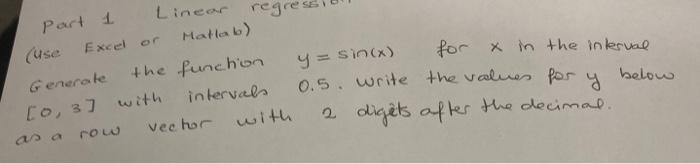 Part 1 Linear regression
(use Excel or Matlab)
Generate the function y = sin(x) for x in the interval
[0, 3] with intervals 0.5. Write the values for y below
as a row vector with 2 digits after the decimal.